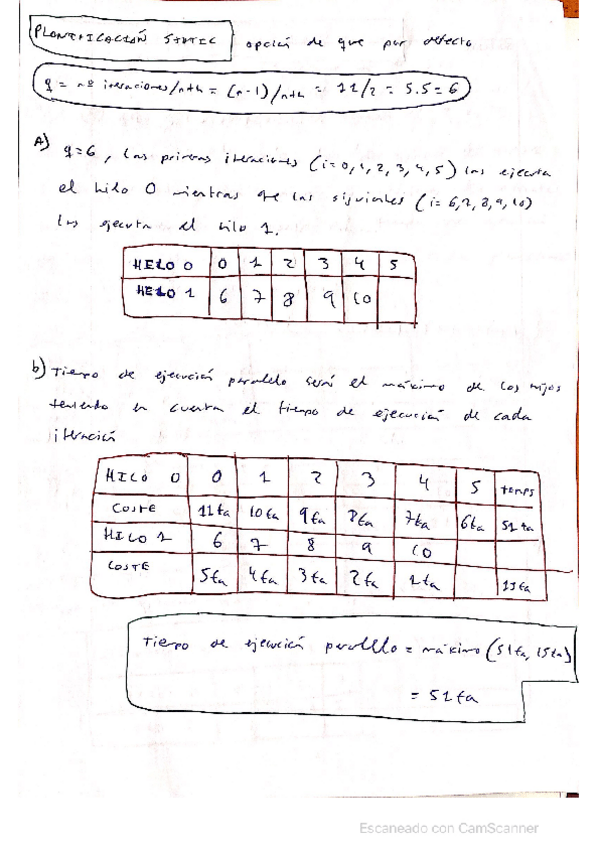 PLANIFICACIÓN STATIC opción de que por defecto
q = nº iteraciones/nth = (n-1)/nth = 11/2 = 5.5 = 6
A) q=6, las primeras iteraciones (i=0,1,2,3,4,5) las ejecuta
el hilo 0 mientras que las siguientes (i=6,7,8,9,10)
las ejecuta el hilo 1.
HILO 0 0 1 2 3 4 5
HILO 1 6 7 8 9 10
b) Tiempo de ejecución paralelo será el máximo de los hijos
teniendo en cuenta el tiempo de ejecución de cada
iteración
HILO 0 0 1 2 3 4 5 temps
COSTE 11ta 10ta 9ta 8ta 7ta 6ta 51ta
HILO 1 6 7 8 9 10
COSTE 5ta 4ta 3ta 2ta 1ta 15ta
Tiempo de ejecución paralelo = máximo (51ta, 15ta)
= 51ta
Escaneado con CamScanner